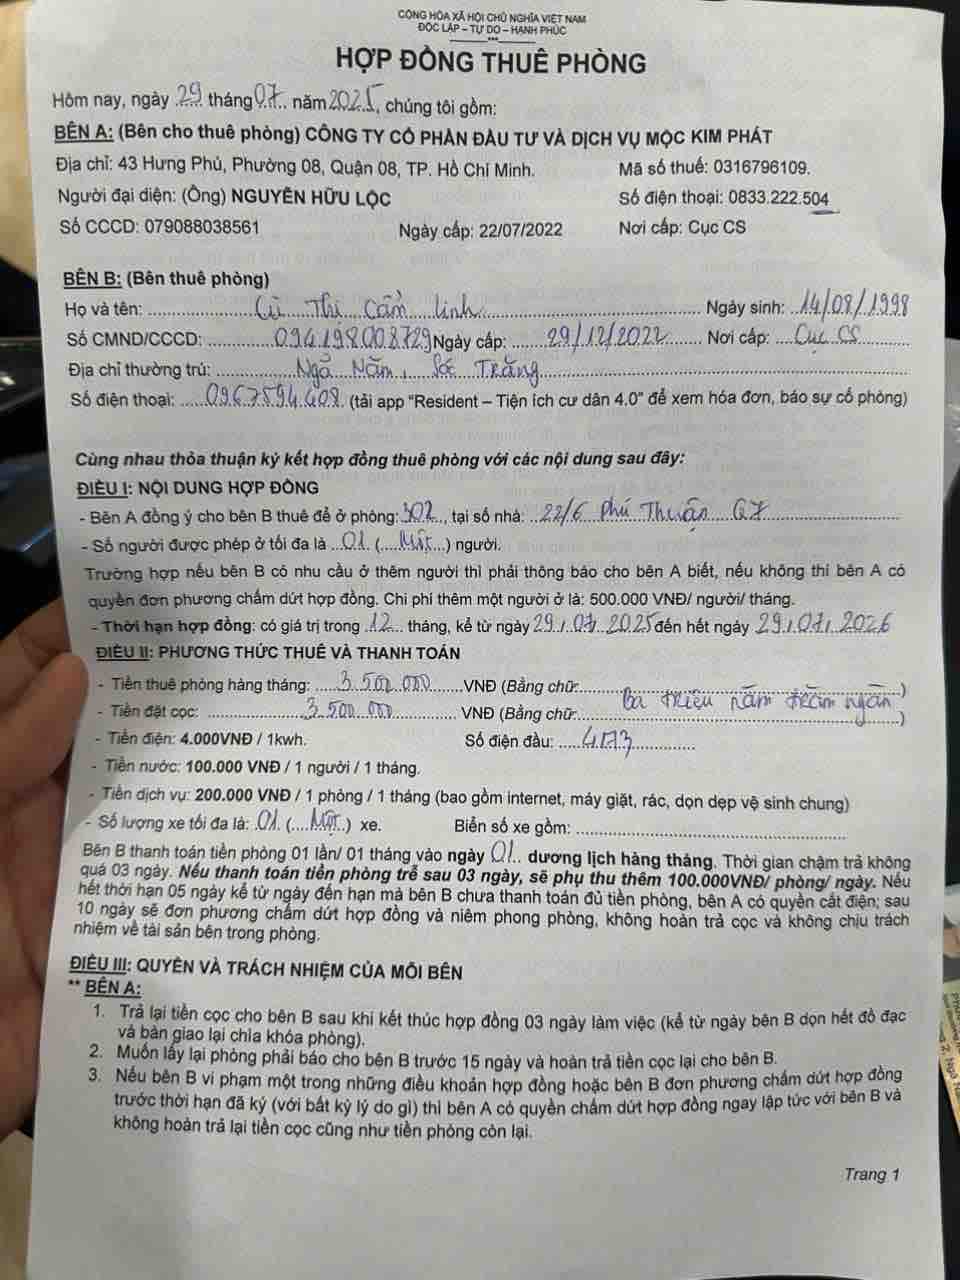 CỘNG HÒA XÃ HỘI CHỦ NGHĨA VIỆT NAM
ĐỘC LẬP – TỰ DO – HẠNH PHÚC
***
HỢP ĐỒNG THUÊ PHÒNG
Hôm nay, ngày 29 tháng 07 năm 2025, chúng tôi gồm:
BÊN A: (Bên cho thuê phòng) CÔNG TY CỔ PHẦN ĐẦU TƯ VÀ DỊCH VỤ MỘC KIM PHÁT
Địa chỉ: 43 Hưng Phú, Phường 08, Quận 08, TP. Hồ Chí Minh. Mã số thuế: 0316796109.
Người đại diện: (Ông) NGUYỄN HỮU LỘC Số điện thoại: 0833.222.504
Số CCCD: 079088038561 Ngày cấp: 22/07/2022 Nơi cấp: Cục CS
BÊN B: (Bên thuê phòng)
Họ và tên: Cù Thị Cẩm Linh Ngày sinh: 14/08/1998
Số CMND/CCCD: 094198008729 Ngày cấp: 29/12/2022 Nơi cấp: Cục CS
Địa chỉ thường trú: Ngã Năm, Sóc Trăng
Số điện thoại: 0967594408 (tải app "Resident – Tiện ích cư dân 4.0" để xem hóa đơn, báo sự cố phòng)
Cùng nhau thỏa thuận ký kết hợp đồng thuê phòng với các nội dung sau đây:
ĐIỀU I: NỘI DUNG HỢP ĐỒNG
- Bên A đồng ý cho bên B thuê để ở phòng: 302, tại số nhà: 22/6 Phú Thuận Q7
- Số người được phép ở tối đa là 01 (Một) người.
Trường hợp nếu bên B có nhu cầu ở thêm người thì phải thông báo cho bên A biết, nếu không thì bên A có
quyền đơn phương chấm dứt hợp đồng. Chi phí thêm một người ở là: 500.000 VNĐ/ người/ tháng.
- Thời hạn hợp đồng: có giá trị trong 12 tháng, kể từ ngày 29/07/2025 đến hết ngày 29/07/2026
ĐIỀU II: PHƯƠNG THỨC THUÊ VÀ THANH TOÁN
- Tiền thuê phòng hàng tháng: 3.500.000 VNĐ (Bằng chữ Ba triệu năm trăm ngàn)
- Tiền đặt cọc: 3.500.000 VNĐ (Bằng chữ )
- Tiền điện: 4.000VNĐ / 1kwh. Số điện đầu: 4173
- Tiền nước: 100.000 VNĐ / 1 người / 1 tháng.
- Tiền dịch vụ: 200.000 VNĐ / 1 phòng / 1 tháng (bao gồm internet, máy giặt, rác, dọn dẹp vệ sinh chung)
- Số lượng xe tối đa là: 01 (Một) xe. Biển số xe gồm:
Bên B thanh toán tiền phòng 01 lần/ 01 tháng vào ngày 01 dương lịch hàng tháng. Thời gian chậm trả không
quá 03 ngày. Nếu thanh toán tiền phòng trễ sau 03 ngày, sẽ phụ thu thêm 100.000VNĐ/ phòng/ ngày. Nếu
hết thời hạn 05 ngày kể từ ngày đến hạn mà bên B chưa thanh toán đủ tiền phòng, bên A có quyền cắt điện; sau
10 ngày sẽ đơn phương chấm dứt hợp đồng và niêm phong phòng, không hoàn trả cọc và không chịu trách
nhiệm về tài sản bên trong phòng.
ĐIỀU III: QUYỀN VÀ TRÁCH NHIỆM CỦA MỖI BÊN
** BÊN A:
1. Trả lại tiền cọc cho bên B sau khi kết thúc hợp đồng 03 ngày làm việc (kể từ ngày bên B dọn hết đồ đạc
và bàn giao lại chìa khóa phòng).
2. Muốn lấy lại phòng phải báo cho bên B trước 15 ngày và hoàn trả tiền cọc lại cho bên B.
3. Nếu bên B vi phạm một trong những điều khoản hợp đồng hoặc bên B đơn phương chấm dứt hợp đồng
trước thời hạn đã ký (với bất kỳ lý do gì) thì bên A có quyền chấm dứt hợp đồng ngay lập tức với bên B và
không hoàn trả lại tiền cọc cũng như tiền phòng còn lại.
Trang 1